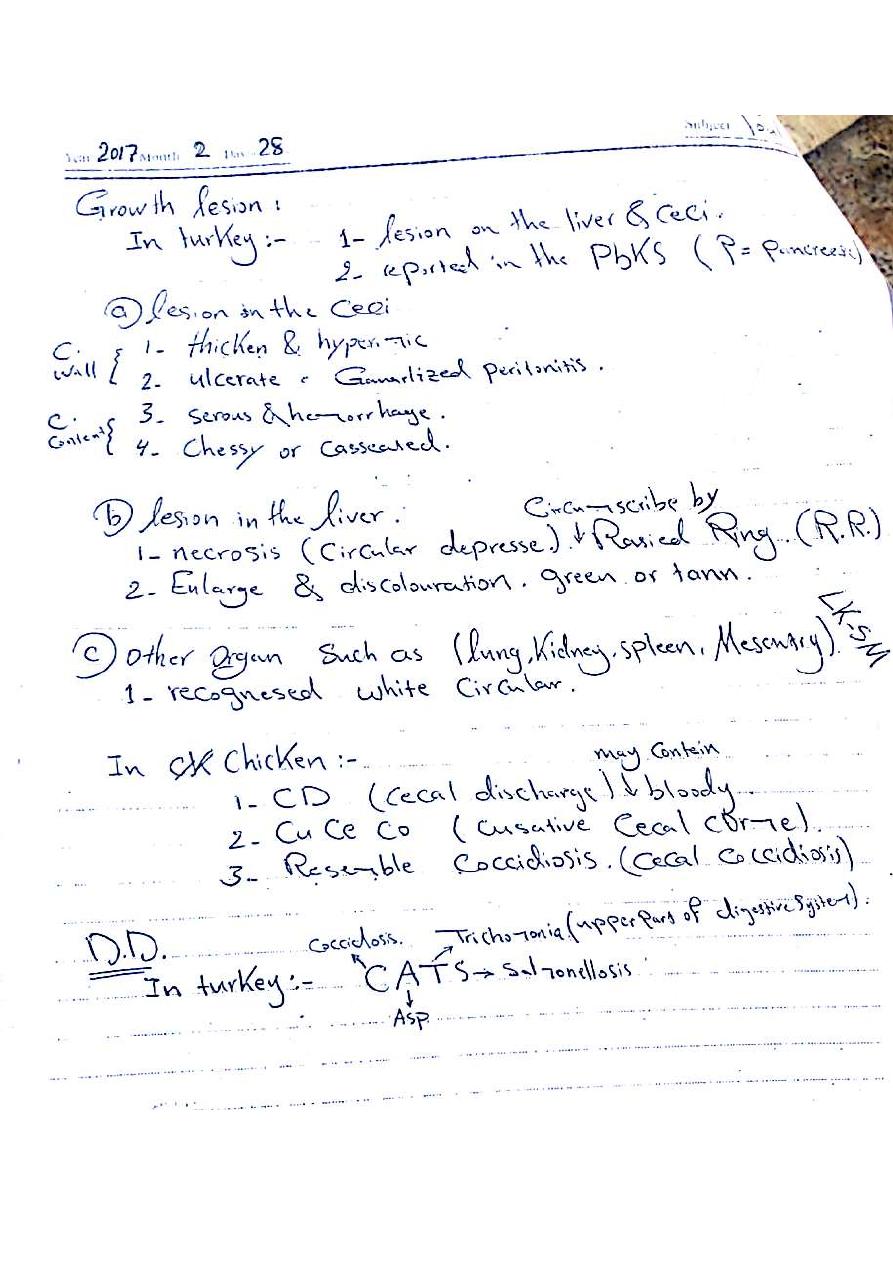 Year 2017 Month 2 Day 28
Subject
Growth lesion :
In turkey :- 1- lesion on the liver & Ceci.
2- reported in the PbKS (P= Puncreese)
(a) lesion in the Ceci
C. Wall { 1- thicken & hyperimic
2- ulcerate Ganarlized peritonitis .
C. Content { 3- serous & hemorrhage .
4- Chessy or casseated .
(b) lesion in the liver . Circumscribe by
1- necrosis (Circular depresse) ↓ Rasied Ring (R.R.)
2- Enlarge & discolouration . green or tann .
(c) other Organ Such as (lung, Kidney, spleen, Mesentary) LK.SM
1- recognesed white Circular .
In Chicken :- may Contein
1- CD (Cecal discharge) ↓ bloody
2- Cu Ce Co (Cusative Cecal Corme).
3- Resemble Coccidiosis . (Cecal Coccidiosis)
D.D. Coccidosis. Trichomonia (upper part of digestive system).
In turkey :- CATS → Salmonellosis
Asp